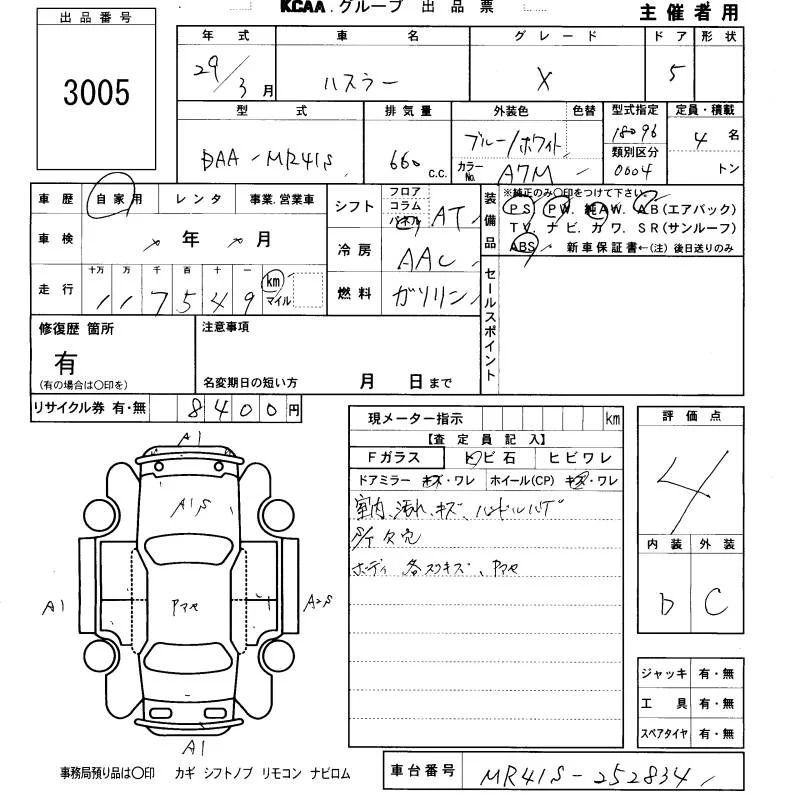 KCAA.グループ 出品票
主催者用
出品番号
3005
年式 車名 グレード ドア 形状
29/3月 ハスラー X 5
型式 排気量 外装色 色替 型式指定 定員・積載
DAA-MR41S 660 C.C. ブルー/ホワイト 18096 4名
カラーNo. A7M 類別区分 0004 トン
車歴 自家用 レンタ 事業.営業車
車検 年 月
走行 十万 万 千 百 十 一
117549 km マイル
シフト フロア コラム パネル AT
冷房 AAC
燃料 ガソリン
装備品 ※純正のみ○印をつけて下さい。
PS. PW. 純AW. AB(エアバック)
TV. ナビ. カワ. SR(サンルーフ)
ABS 新車保証書←(注) 後日送りのみ
セールスポイント
修復歴 箇所
有
(有の場合は○印を)
注意事項
名変期日の短い方 月 日まで
リサイクル券 有・無 8400円
現メーター指示 km
【査定員記入】
Fガラス トビ石 ヒビワレ
ドアミラー キズ・ワレ ホイール(CP) キズ・ワレ
室内、汚れ、キズ、ハンドルハゲ
S/T欠穴
ボディ 各スリキズ、ヤマセ
A1
A1S
A1 ヤマセ A2S
A1
評価点
4
内装 外装
D C
ジャッキ 有・無
工具 有・無
スペアタイヤ 有・無
事務局預り品は○印 カギ シフトノブ リモコン ナビロム
車台番号 MR41S-252834